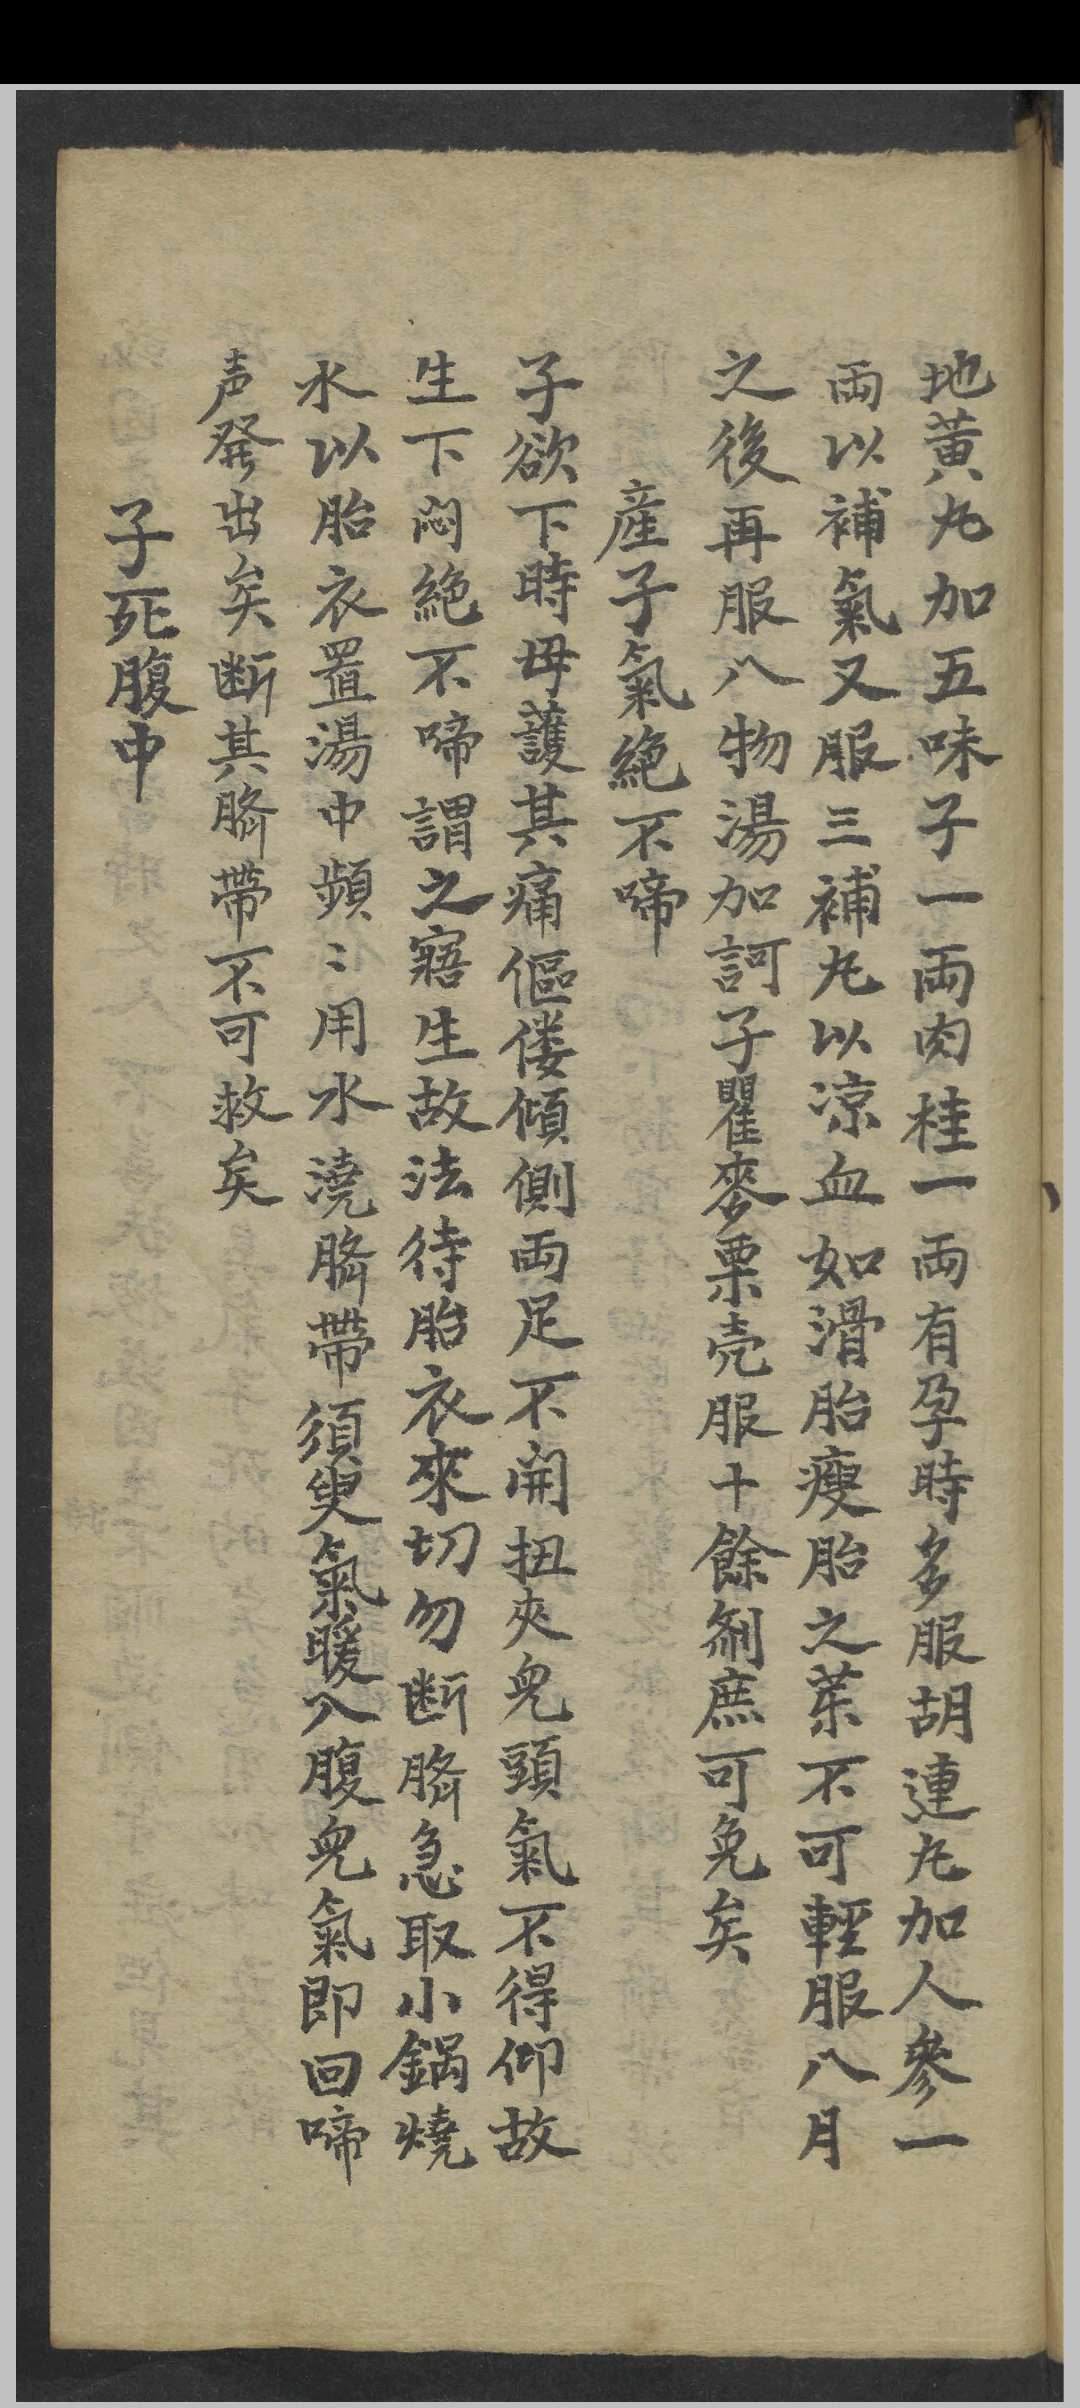 地黄丸加五味子一両肉桂一両有孕時多服胡連丸加人參一
両以補氣又服三補丸以凉血如滑胎瘦胎之茱不可輕服八月
之後再服八物湯加訶子瞿麥栗壳服十餘剤庶可免矣
産子氣絶不啼
子欲下時毋護其痛傴僂傾側両足不開扭夾児頭氣不得仰故
生下悶絶不啼謂之寤生故法待胎衣來切勿断臍急取小鍋燒
水以胎衣置湯中頻〻用水澆臍帶須臾氣暖入腹児氣即回啼
声發出矣断其臍帶不可救矣
子死腹中